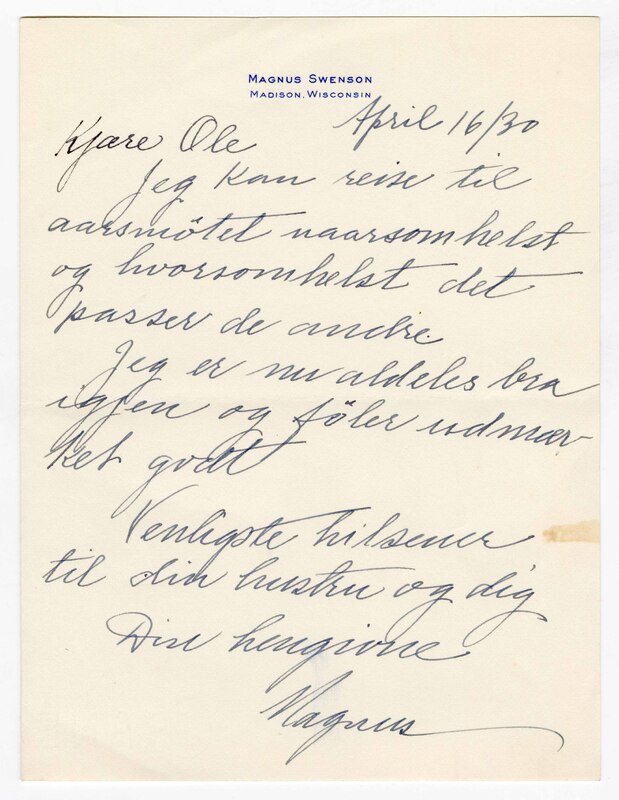 MAGNUS SWENSON
MADISON, WISCONSIN
April 16/30
Kjære Ole
Jeg kan reise til
aarsmötet naarsomhelst
og hvorsomhelst det
passer de andre.
Jeg er nu aldeles bra
igjen og föler udmær-
ket godt
Venligste hilsener
til din hustru og dig
Din hengivne
Magnus